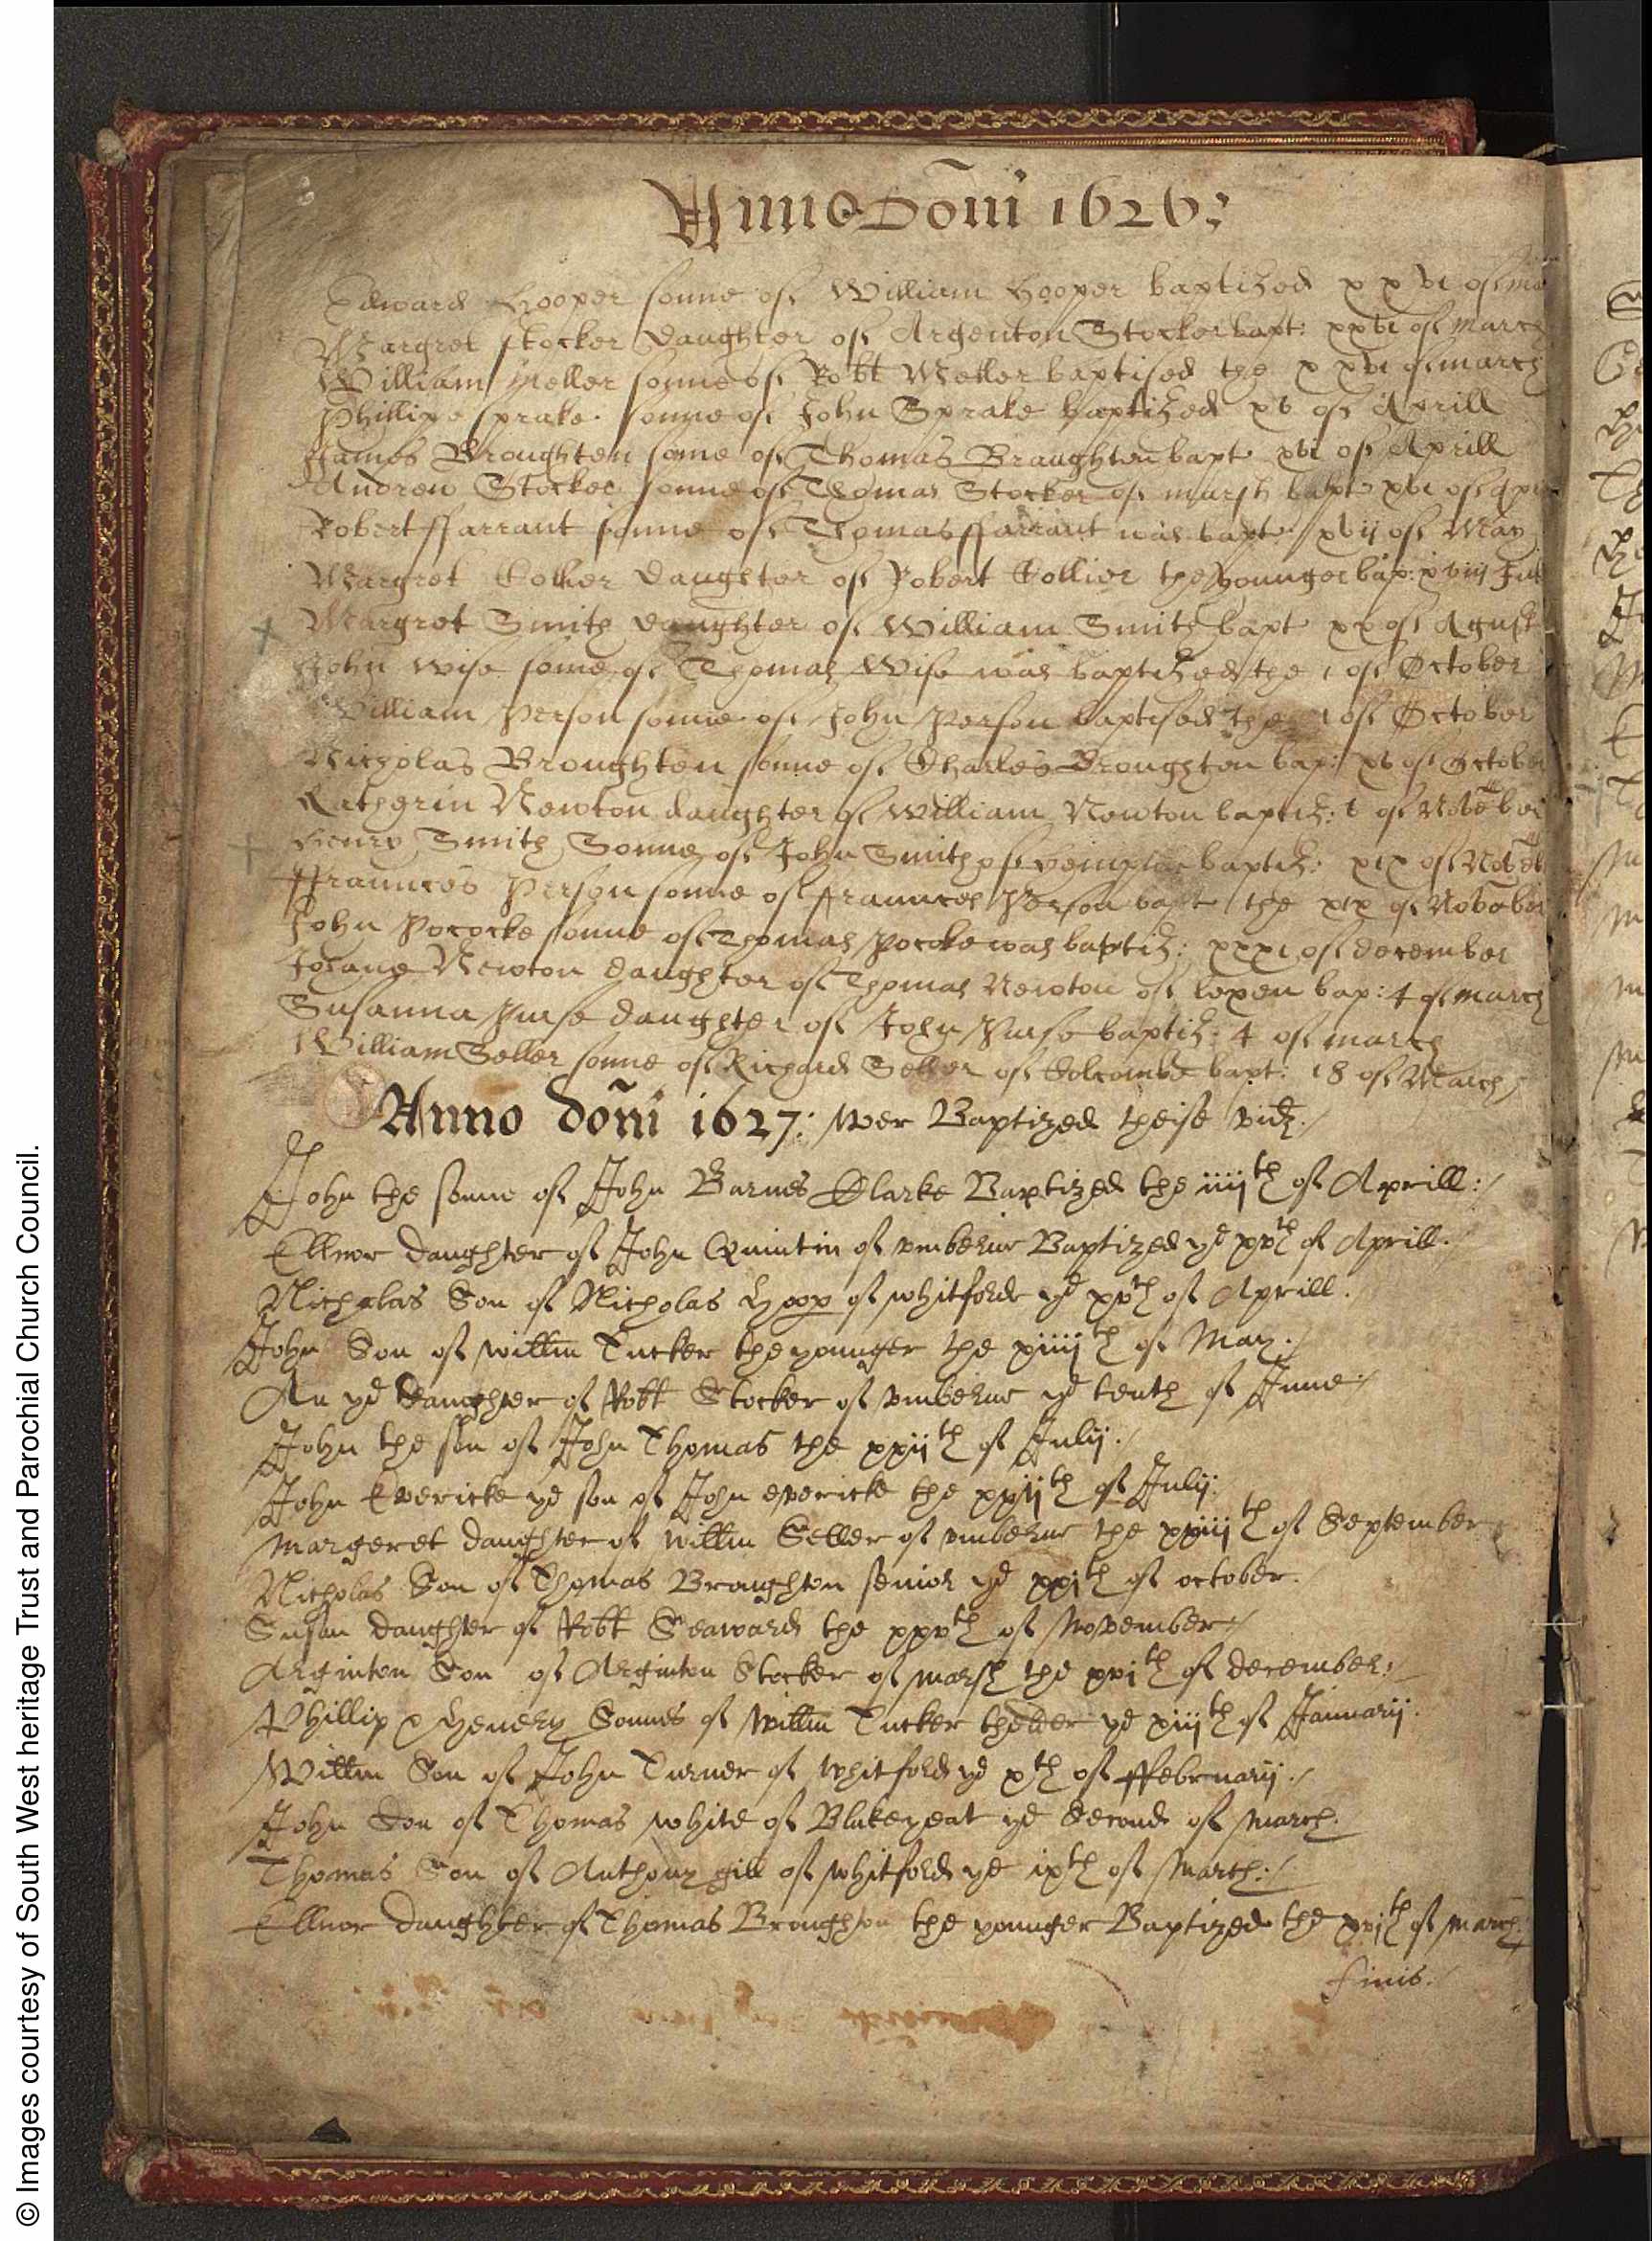 Anno Domi 1626:
Edward Hooper sonne of William Hooper baptized xxvi of
Margret Stocker daughter of Argenton Stocker bapt: xxvi of march
William Meller sonne of Robt Meller baptised the xxvi of march
Phillipe Sprake sonne of John Sprake baptized xv of Aprill
James Broughten sonne of Thomas Broughten bapt xvi of Aprill
Andrew Stocker sonne of Thomas Stocker of marsh bapt xvi of
Robert ffarrant sonne of Thomas ffarrant was bapt: xvij of May
Margret Collier daughter of Robert Collier the younger bap:
Margret Smith daughter of William Smith bapt xx of Agust
John Wise sonne of Thomas Wise was baptized the 1 of October
William Person sonne of John Person baptised the 1 of October
Nicholas Broughten sonne of Charles Broughton bap: xv of October
Katherin Newton daughter of William Newton baptiz: v of
Henry Smith Sonne of John Smith of baptiz: xix of
ffraunces Person sonne of ffraunces Person bapt the xix of
John Pococke sonne of Thomas Pococke was baptiz: xxxi of december
Joane Newton daughter of Thomas Newton of lopen bap: 4 of march
Susanna Purse daughter of John Purse baptiz: 4 of march
William Seller sonne of Richard Seller of Holcombe bapt: 18 of March
Anno Doñi 1627: Wer Baptized theise vidz./
John the sonne of John Barnes Clarke Baptized the iiijth of Aprill:/
Ellnor daughter of John Quintin of Baptized ye xvth of Aprill.
Nicholas Son of Nicholas Hoop of whitfold ye xvth of Aprill.
John Son of Willm Tucker the younger the xiiijth of May./
An ye daughter of Robt Stocker of ye tenth of June/
John the son of John Thomas the xxijth of Julij./
John Evericke ye son of John evericke the xxijth of Julij:
Margeret daughter of Willm Seller of the xxiijth of September
Nicholas Son of Thomas Broughton senior ye xxjth of october.
Susan daughter of Robt Seaward the xxvth of November/
Arginton Son of Arginton Stocker of marsh the xvjth of december:/
Phillip & Henery Sonnes of Willm Tucker thelder ye xiijth of Januarij.
Willm Son of John Turner of Whitfold ye xth of ffebruarij./
John Son of Thomas white of Blakeyeat ye Second of march.
Thomas Son of Anthony gill of whitfold ye ixth of March:/
Ellnor daughter of Thomas Broughton the younger Baptized the xvjth of march:/
finis./
© Images courtesy of South West heritage Trust and Parochial Church Council.